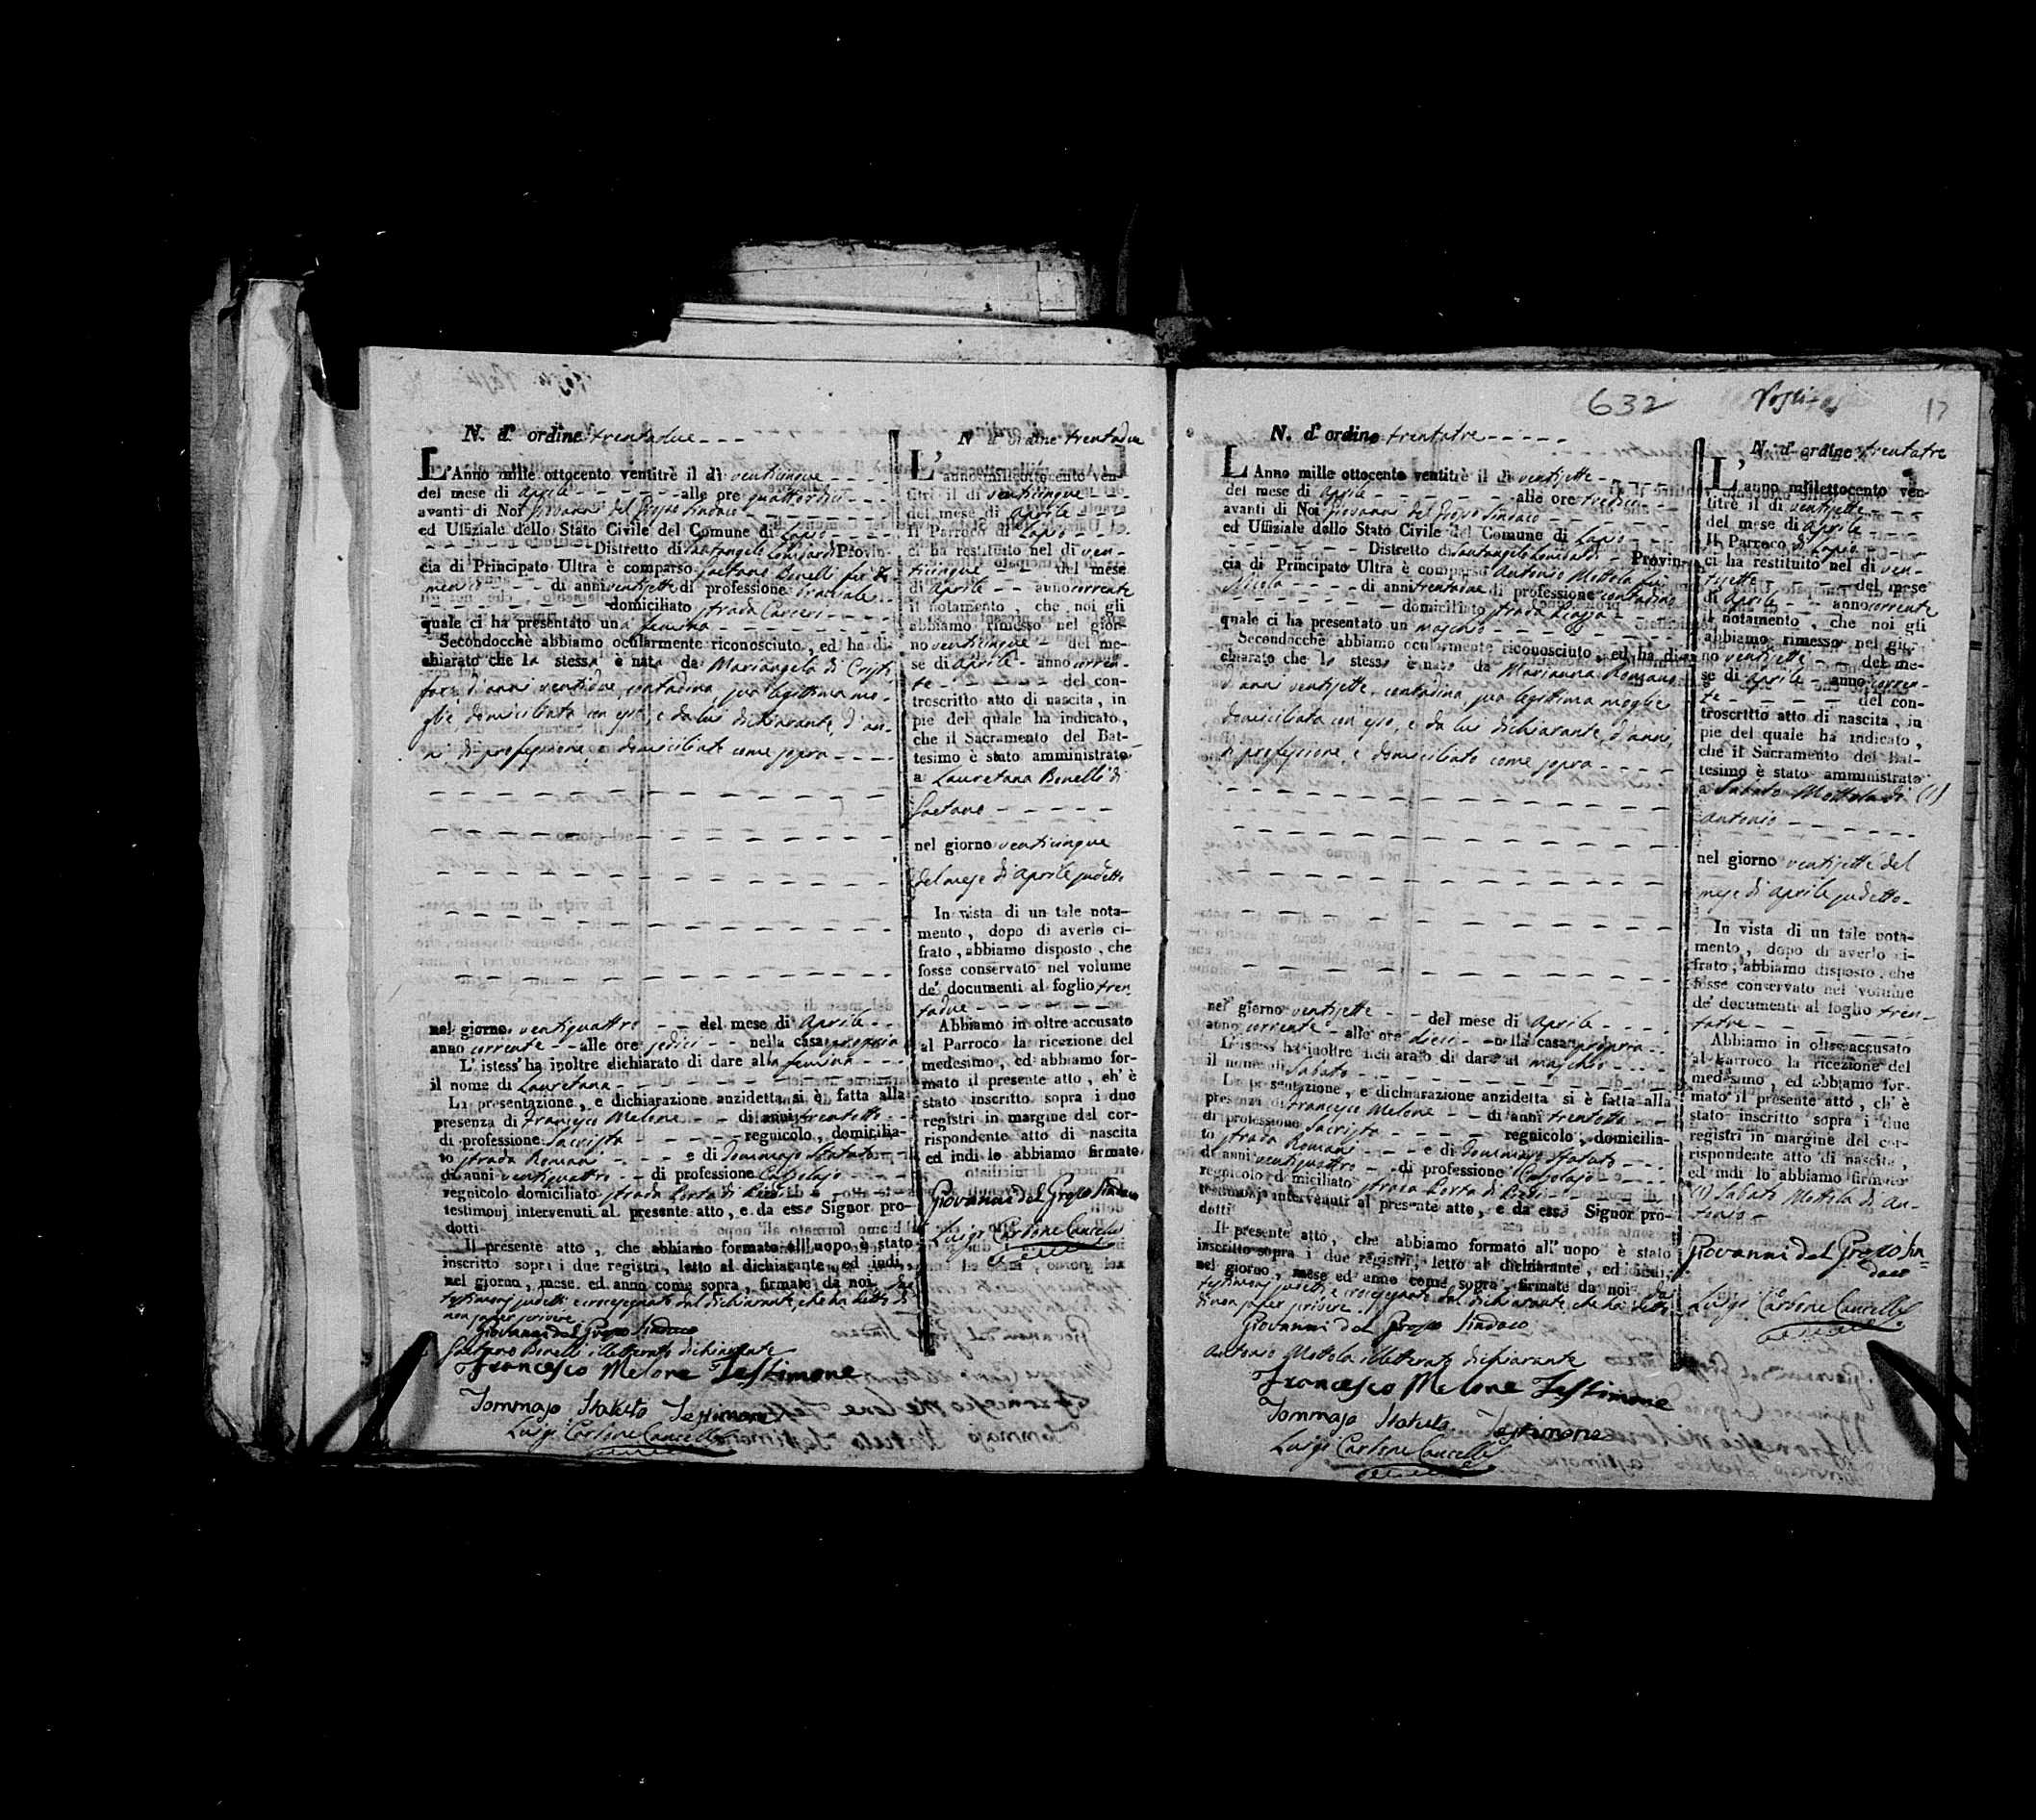 N. d' ordine trentadue
L'Anno mille ottocento ventitrè il dì venticinque
del mese di Aprile alle ore quattordici
avanti di Noi Giovanni del Grosso Sindaco
ed Uffiziale dello Stato Civile del Comune di Lapio
Distretto di Santangelo Lombardi Provin-
cia di Principato Ultra è comparso Gaetano Bonelli fu
di anni ventisette di professione bracciale
domiciliato strada Carceri
quale ci ha presentato una femina
Secondocchè abbiamo ocularmente riconosciuto, ed ha di-
chiarato che la stessa è nata da Mariangela di Cristo-
faro d'anni ventidue contadina sua legittima mo-
glie domiciliata con esso, e da lui dichiarante, d'an-
ni di professione, e domiciliato come sopra
nel giorno ventiquattro del mese di Aprile
anno corrente alle ore sedici nella casa propria
L' istess' ha inoltre dichiarato di dare alla femina
il nome di Lauretana
La presentazione, e dichiarazione anzidetta si è fatta alla
presenza di Francesco Melone di anni trentotto
di professione Sacrista regnicolo, domicilia-
to strada Romani e di Tommaso Statuto
di anni ventiquattro di professione Calzolajo
regnicolo domiciliato strada Porta di
testimonj intervenuti al presente atto, e da esso Signor pro-
dotti
Il presente atto, che abbiamo formato all'uopo è stato
inscritto sopra i due registri, letto al dichiarante, ed indi,
nel giorno, mese ed anno come sopra, firmato da noi, dai
testimonj sudetti e crocesegnato dal dichiarante, che ha detto di
non saper scrivere
Giovanni del Grosso Sindaco
Gaetano Bonelli illetterato dichiarante
Francesco Melone Testimone
Tommaso Statuto Testimone
Luigi Carbone Cancelle
N. d' ordine trentadue
L' anno milleottocento ven-
titrè il dì venticinque
del mese di Aprile
Il Parroco di Lapio
ci ha restituito nel dì ven-
ticinque del mese
di Aprile anno corrente
il notamento, che noi gli
abbiamo rimesso nel gior-
no venticinque del me-
se di Aprile anno corren-
te del con-
troscritto atto di nascita, in
pie del quale ha indicato,
che il Sacramento del Bat-
tesimo è stato amministrato
a Lauretana Bonelli di
Gaetano
nel giorno venticinque
del mese di Aprile sudetto
In vista di un tale nota-
mento, dopo di averlo ci-
frato, abbiamo disposto, che
fosse conservato nel volume
de' documenti al foglio tren
tadue
Abbiamo in oltre accusato
al Parroco la ricezione del
medesimo, ed abbiamo for-
mato il presente atto, ch' è
stato inscritto sopra i due
registri in margine del cor-
rispondente atto di nascita
ed indi lo abbiamo firmato
Giovanni del Grosso Sindaco
Luigi Carbone Cancelle
632
17
N. d' ordine trentatre
L'Anno mille ottocento ventitrè il dì ventisette
del mese di Aprile alle ore tredici
avanti di Noi Giovanni del Grosso Sindaco
ed Uffiziale dello Stato Civile del Comune di Lapio
Distretto di Santangelo Lombardi Provin-
cia di Principato Ultra è comparso Antonio Mottola fu
Nicola di anni trentadue di professione contadino
domiciliato strada Piazza
quale ci ha presentato un maschio
Secondocchè abbiamo ocularmente riconosciuto, ed ha di-
chiarato che lo stesso è nato da Marianna Romano
d'anni ventisette, contadina, sua legittima moglie
domiciliata con esso, e da lui dichiarante, d'anni,
di professione, e domiciliato come sopra
nel giorno ventisette del mese di Aprile
anno corrente alle ore dieci nella casa propria
L'istess' ha inoltre dichiarato di dare al maschio
il nome di Sabato
La presentazione, e dichiarazione anzidetta si è fatta alla
presenza di Francesco Melone di anni trentotto
di professione Sacrista regnicolo, domicilia-
to strada Romani e di Tommaso Statuto
di anni ventiquattro di professione Calzolajo
regnicolo domiciliato strada Porta di
testimonj intervenuti al presente atto, e da esso Signor pro-
dotti
Il presente atto, che abbiamo formato all' uopo è stato
inscritto sopra i due registri, letto al dichiarante, ed indi,
nel giorno, mese ed anno come sopra, firmato da noi dai
testimonj sudetti, e crocesegnato dal dichiarante, che ha detto
di non saper scrivere
Giovanni del Grosso Sindaco
Antonio Mottola illetterato dichiarante
Francesco Melone Testimone
Tommaso Statuto Testimone
Luigi Carbone Cancelle
N. d' ordine trentatre
L' anno millettocento ven-
titrè il dì ventisette
del mese di Aprile
Il Parroco di Lapio
ci ha restituito nel dì ven-
tisette del mese
di Aprile anno corrente
il notamento, che noi gli
abbiamo rimesso nel gior-
no ventisette del me-
se di Aprile anno corren-
te del con-
troscritto atto di nascita, in
pie del quale ha indicato,
che il Sacramento del Bat-
tesimo è stato amministrato
a Sabato Mottola di (1)
Antonio
nel giorno ventisette del
mese di Aprile sudetto
In vista di un tale nota-
mento, dopo di averlo ci-
frato, abbiamo disposto, che
fosse conservato nel volume
de' documenti al foglio tren-
tatre
Abbiamo in oltre accusato
al Parroco la ricezione del
medesimo, ed abbiamo for-
mato il presente atto, ch' è
stato inscritto sopra i due
registri in margine del cor-
rispondente atto di nascita,
ed indi lo abbiamo firmato
(1) Sabato Mottola di An-
tonio
Giovanni del Grosso Sin=
daco
Luigi Carbone Cancelle